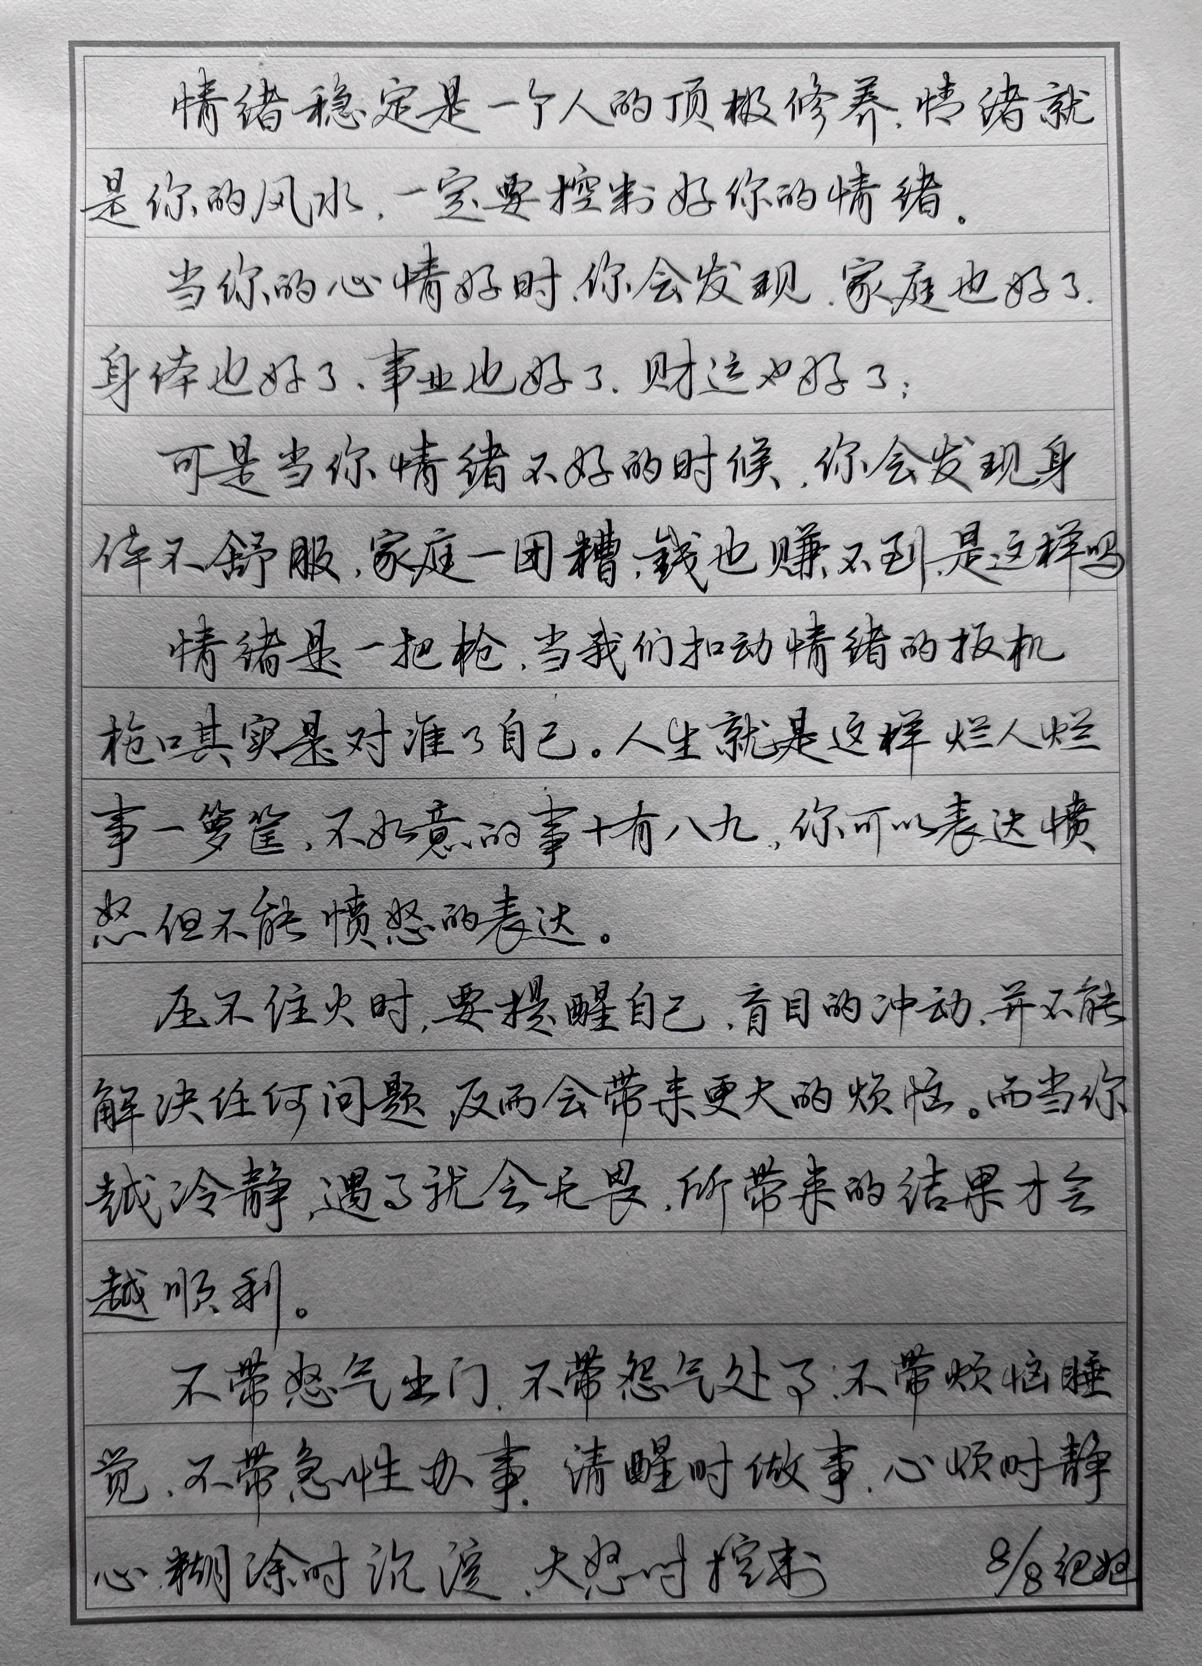 情绪稳定是一个人的顶极修养，情绪就
是你的风水，一定要控制好你的情绪。
当你的心情好时，你会发现，家庭也好了，
身体也好了、事业也好了，财运也好了；
可是当你情绪不好的时候，你会发现身
体不舒服，家庭一团糟，钱也赚不到，是这样吗
情绪是一把枪，当我们扣动情绪的扳机
枪口其实是对准了自己。人生就是这样烂人烂
事一箩筐，不如意的事十有八九，你可以表达愤
怒但不能愤怒的表达。
压不住火时，要提醒自己，盲目的冲动，并不能
解决任何问题，反而会带来更大的烦恼。而当你
越冷静，遇事就会无畏，所带来的结果才会
越顺利。
不带怒气出门，不带怨气处事，不带烦恼睡
觉，不带急性办事，清醒时做事，心烦时静
心，糊涂时沉淀，大怒时控制
8/8